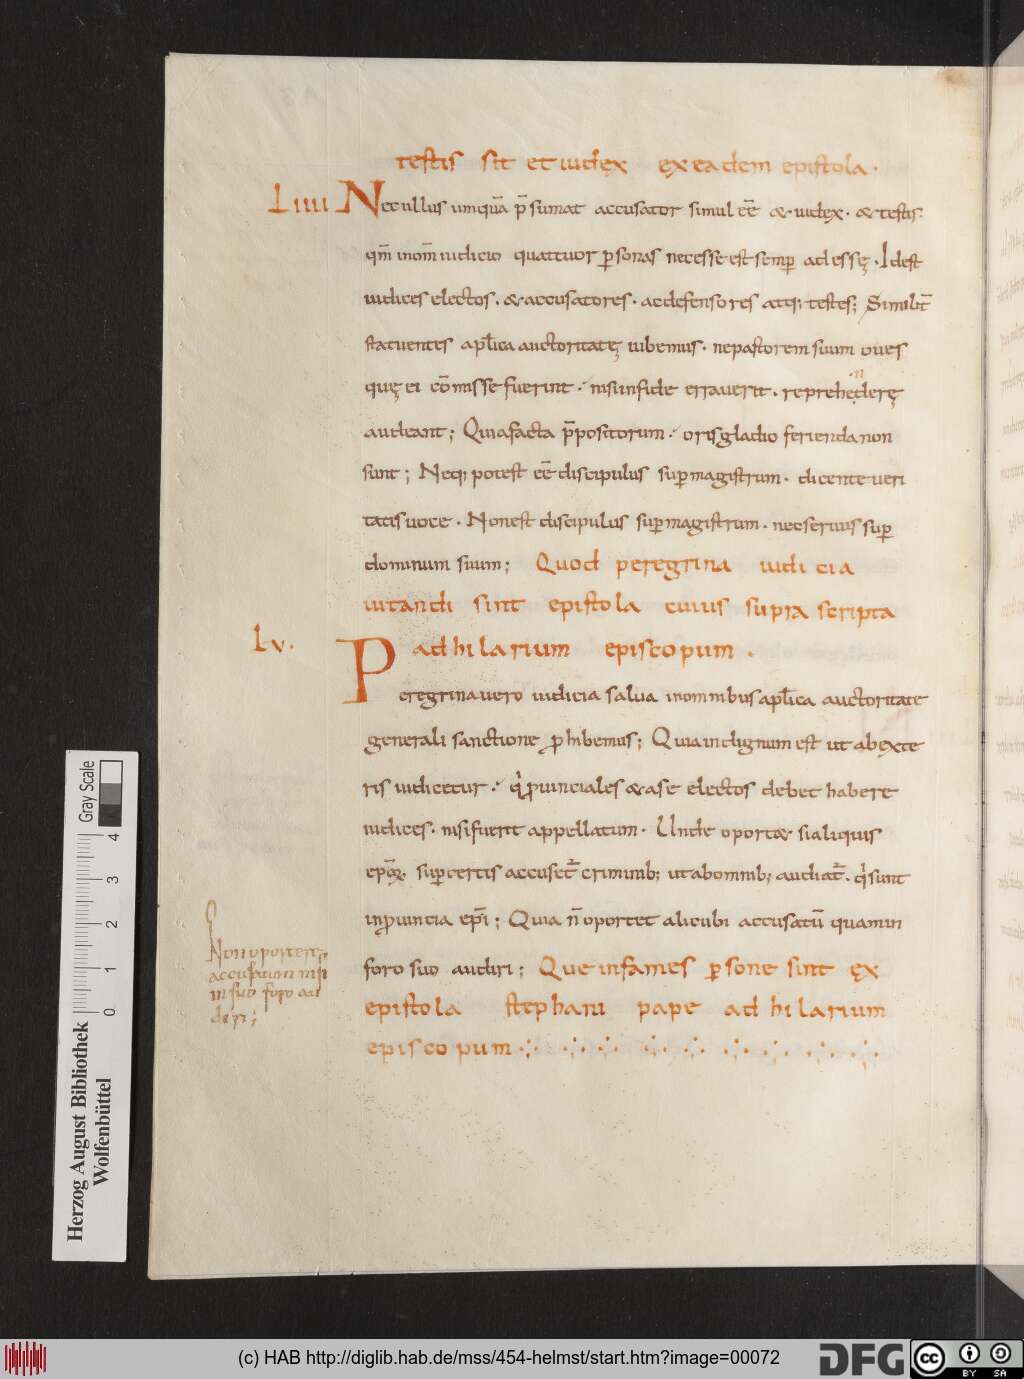 testis sit et iudex ex eadem epistola·
Liiii Nec ullus umquā p̄sumat accusator simul eē & iudex· & testis·
qm̄ in om̄i iudicio quattuor ꝑsonas necesse est semꝑ ad essę· Idest
iudices electos· & accusatores· ac defensores atq; testes; Similit̄
statuentes apl̄ica auctoritatę iubemus· ne pastorem suum oues
quę ei cōmisse fuerint· nisi in fide errauerit· reprehen̄derę
audeant; Quia facta p̄positorum· oris gladio ferienda non
sunt; Neq; potest eē discipulus suꝑ magistrum· dicente ueri
tatis uoce· Non est discipulus suꝑ magistrum· nec seruus suꝑ
dominum suum; Quod peregrina iudicia
uitandi sint epistola cuius supra scripta
Lv. ad hilarium episcopum·
Peregrina uero iudicia salua in omnibus apl̄ica auctoritate
generali sanctione ꝓhibemus; Quia indignum est ut ab exte
ris iudicetur· qͥ ꝓuinciales & a se electos debet habere
iudices· nisi fuerit appellatum· Unde oport& si aliquis
suꝑ certis accuset᷑ criminib; ut ab omnib; audiat᷑· qͥ sunt
in ꝓuincia ep̄i; Quia n̄ oportet alicubi accusatū quam in
foro suo audiri; Que infames ꝑsone sint ęx
epistola stephani pape ad hilarium
episcopum·
Non oportere
accusatum nisi
in suo foro au
diri;
Gray Scale
0 1 2 3 4
Herzog August Bibliothek
Wolfenbüttel
(c) HAB http://diglib.hab.de/mss/454-helmst/start.htm?image=00072
DFG
cc BY SA